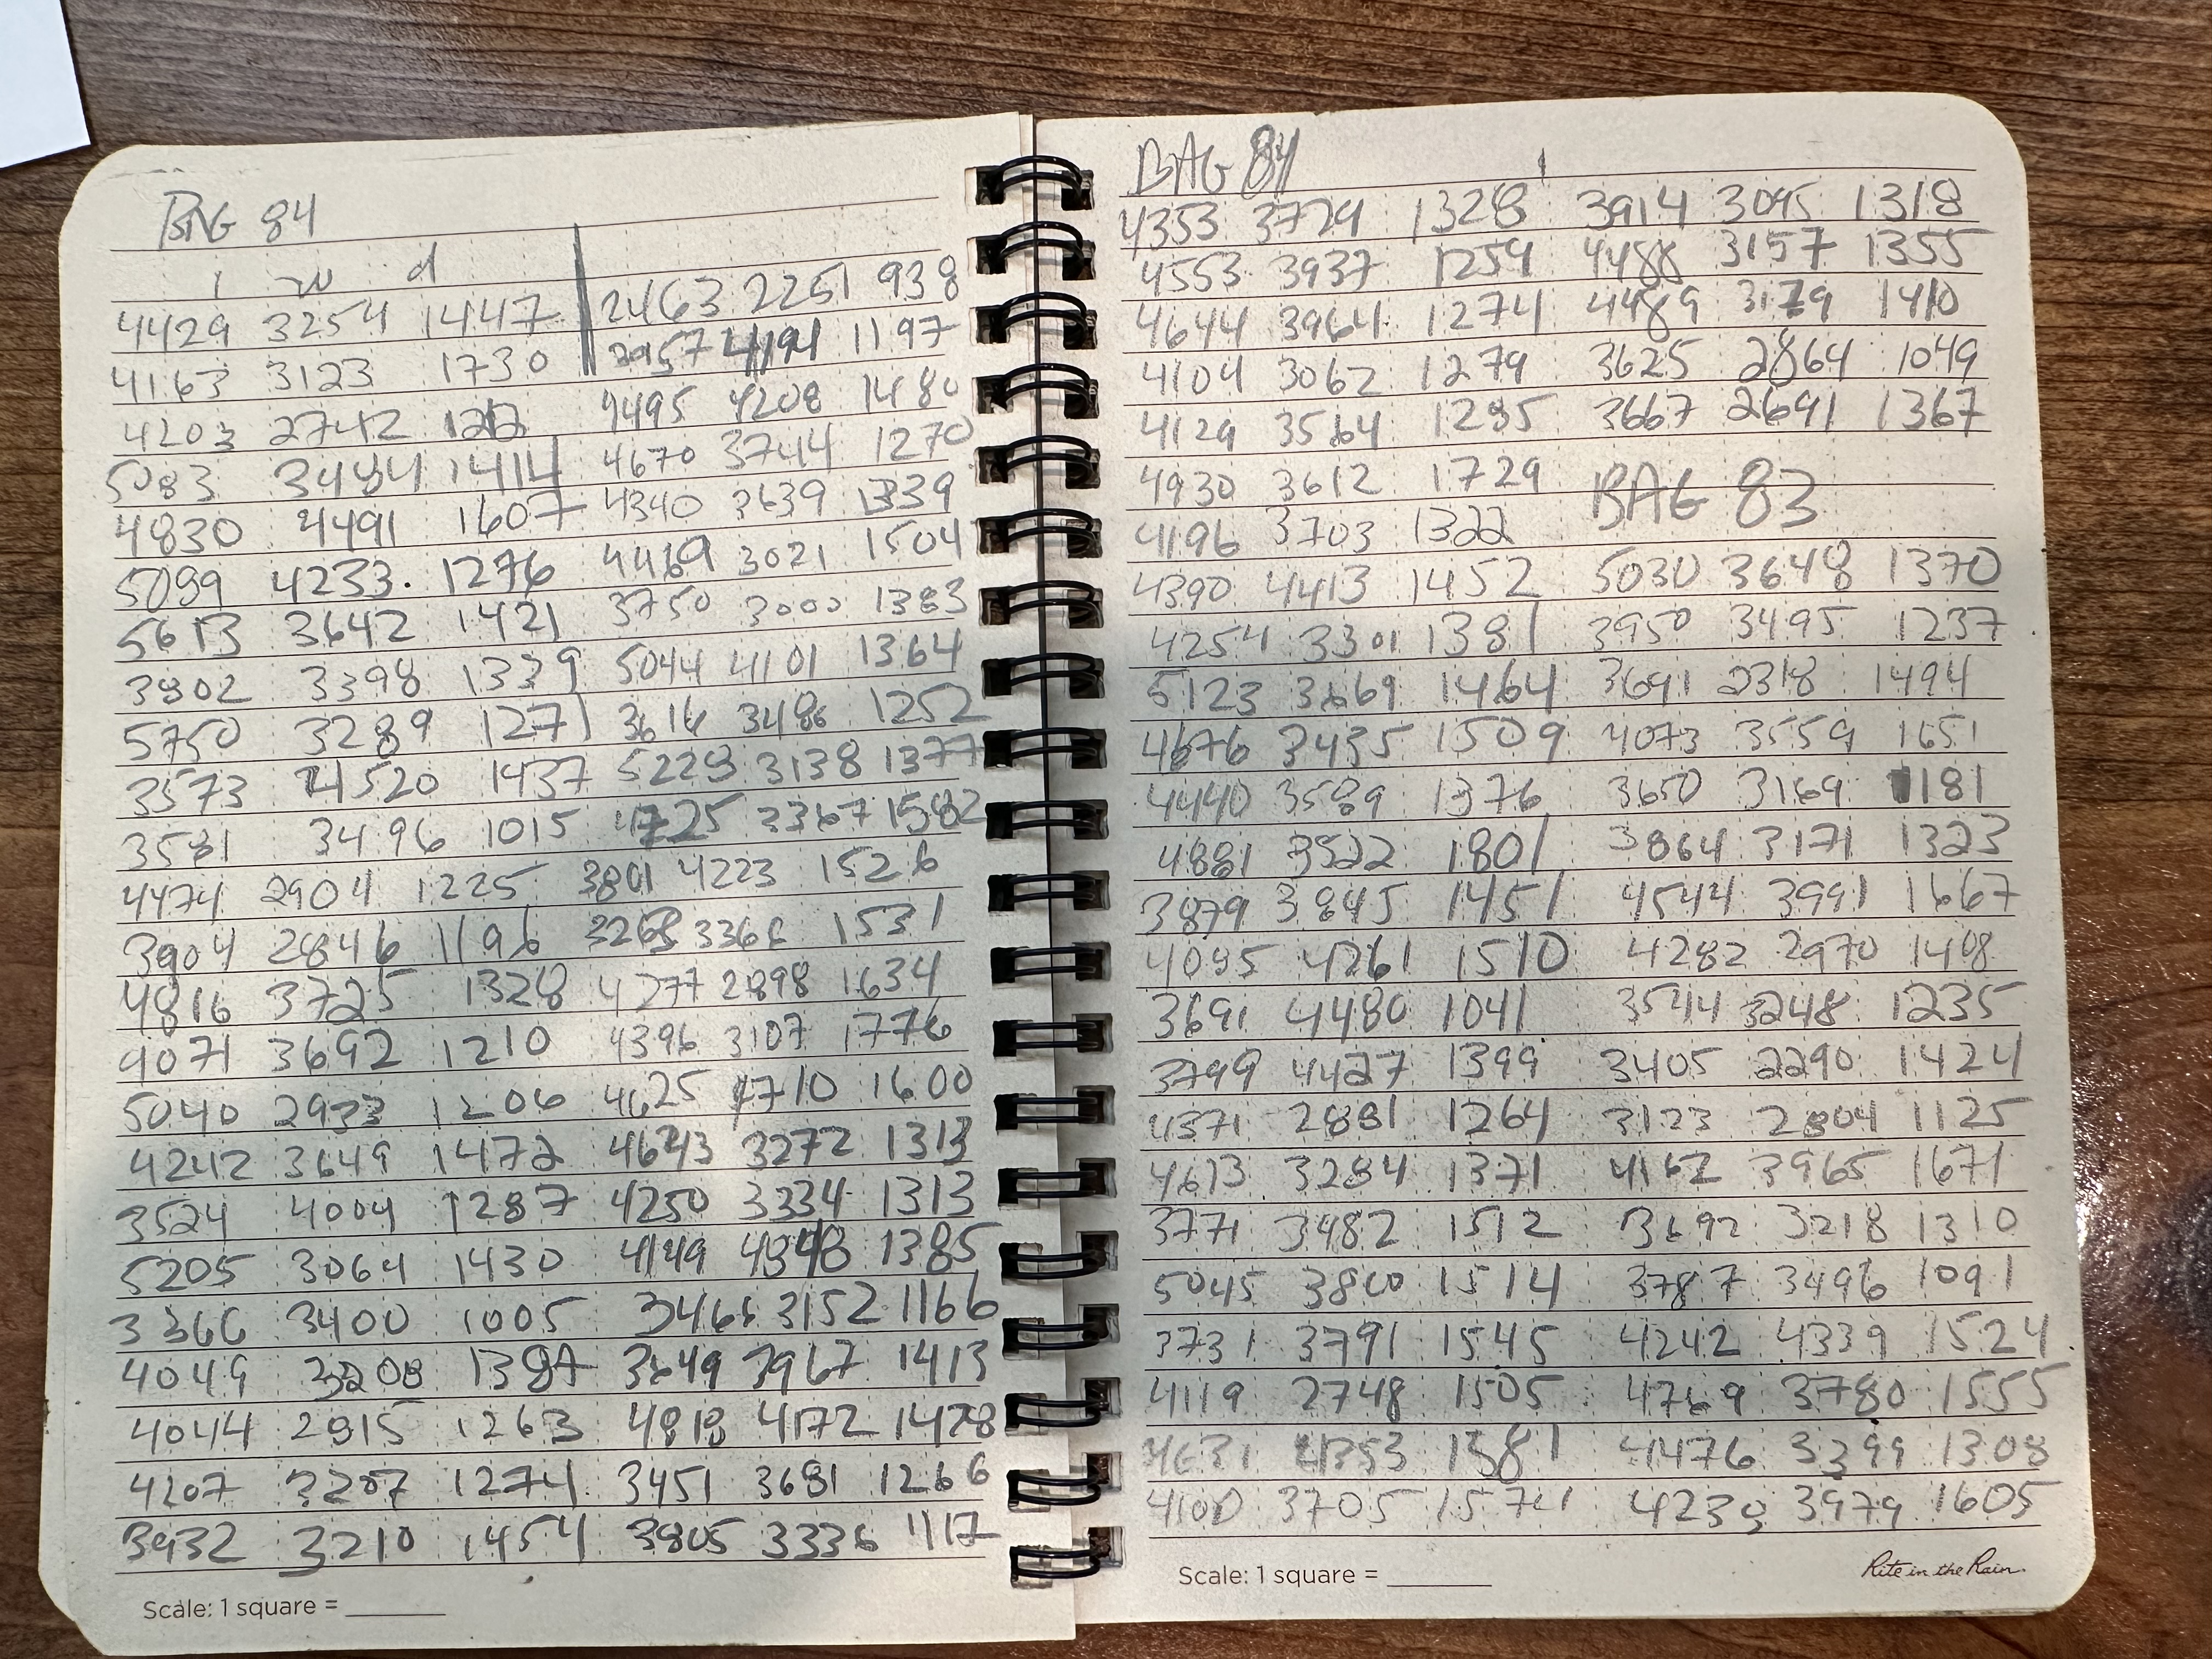 BAG 84
l w d
4429 3254 1447 2463 2251 938
4163 3123 1730 2957 1197
4203 2742 4495 4208 1480
5083 3494 1414 4670 3744 1270
4830 4491 1607 4340 3639 1339
5099 4233 1276 3021 1504
5613 3642 1421 3750 3000 1383
3802 3398 1339 5044 4101 1364
5750 3289 1271 3616 3486 1252
3573 4520 1437 5229 3138 1377
3581 3496 1015 4725 3367 1582
4474 2904 1225 3801 4223 1526
3904 2846 1196 3366 1531
4816 3725 1328 4277 2898 1634
4071 3692 1210 4396 3107 1776
5040 2973 1606 4625 4710 1600
4242 3649 1472 4643 3272 1313
3524 4004 1287 4250 3334 1313
5205 3064 1430 4149 4348 1385
3366 3400 1005 3466 3152 1166
4049 3208 1394 3649 2967 1413
4044 2915 1263 4818 4172 1478
4267 3287 1274 3451 3681 1266
3932 3210 1454 3805 3336 1117
Scale: 1 square =
BAG 84
4353 3724 1328 3914 3045 1318
4553 3937 1254 4488 3157 1355
4644 3964 1274 4489 3179 1410
4104 3062 1279 3625 2864 1049
4129 3564 1295 3667 2691 1367
4930 3612 1729
4196 3703 1322 BAG 83
4390 4413 1452 5030 3648 1370
4254 3301 1381 3950 3495 1237
5123 3669 1464 3691 2318 1494
4676 3455 1509 4073 3559 1651
4440 3589 1376 3650 3169 1181
4881 3522 1801 3864 3171 1323
3879 3845 1451 4544 3991 1667
4095 4261 1510 4282 2970 1498
3691 4480 1041 3574 3248 1235
3799 4427 1399 3405 2290 1424
4371 2881 1264 3123 2804 1125
4613 3284 1371 4162 3965 1671
3771 3482 1512 3692 3218 1310
5045 3800 1514 3787 3496 1091
3731 3791 1545 4242 4339 1524
4119 2748 1505 4769 3780 1555
4631 4753 1381 4476 3399 1308
4100 3705 1574 4239 3979 1605
Scale: 1 square =
Rite in the Rain